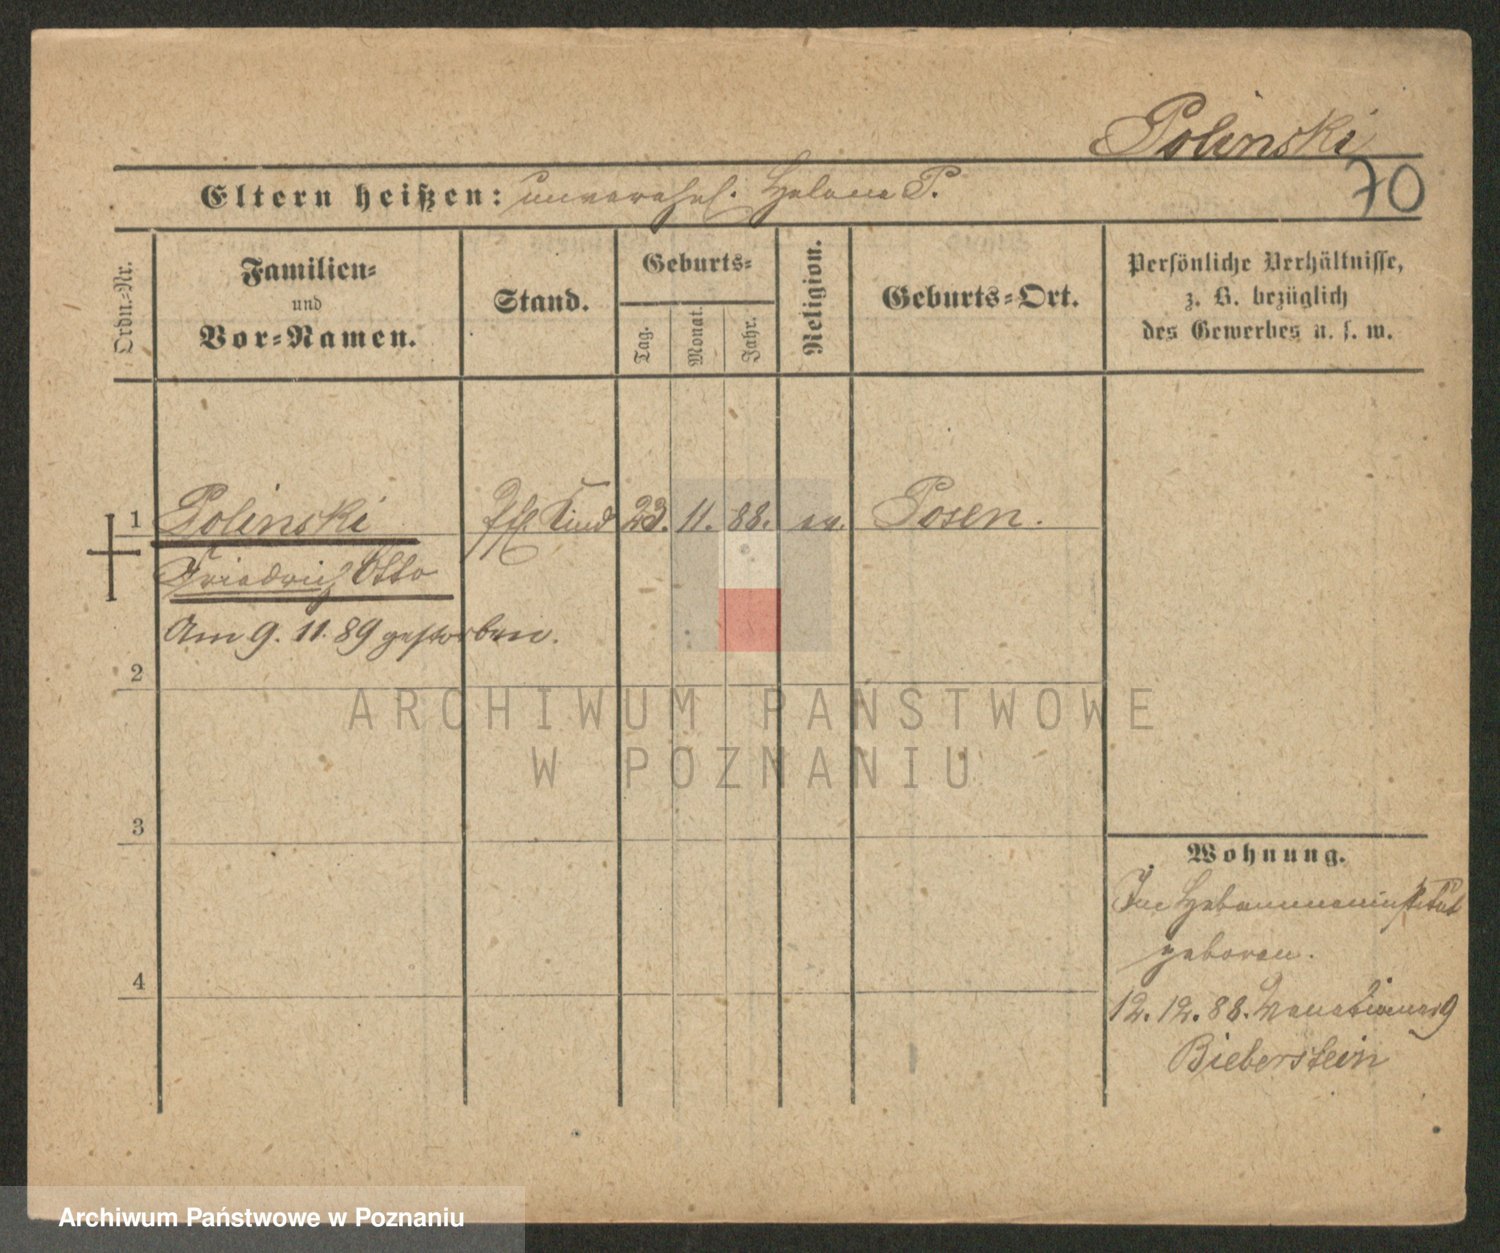 Polinski
70
Eltern heißen: unverehel. Helene P.
Ordn.-Nr.
Familien-
und
Vor-Namen.
Stand.
Geburts-
Tag.
Monat.
Jahr.
Religion.
Geburts-Ort.
Persönliche Verhältnisse,
z. B. bezüglich
des Gewerbes u. s. w.
1 Polinski Kind 23. 11. 88. ev. Posen.
Friedrich Otto
Am 9. 11. 89 gestorben.
2
3
4
Wohnung.
Im Hebammeninstitut
geboren.
12. 12. 88. 9
Bieberstein
ARCHIWUM PAŃSTWOWE
W POZNANIU
Archiwum Państwowe w Poznaniu